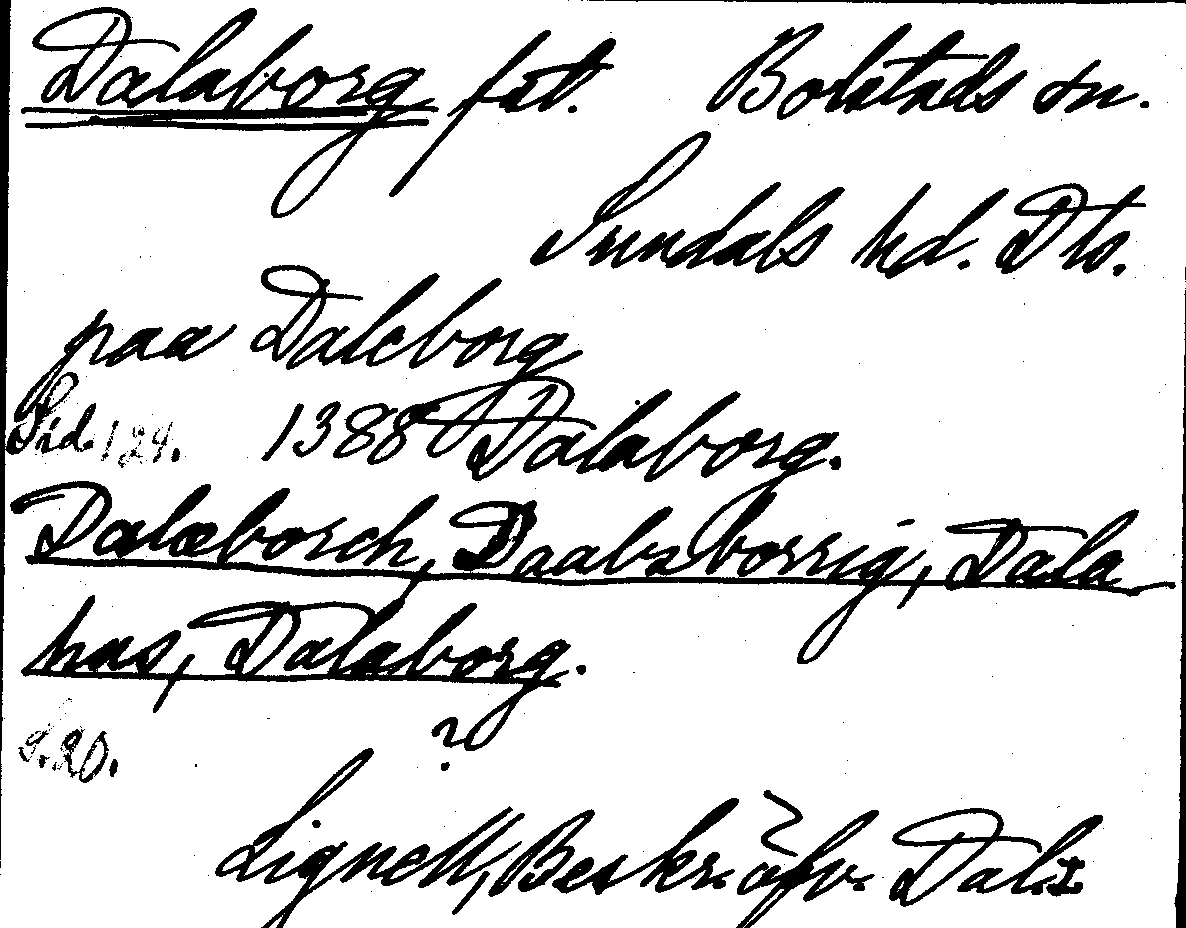 Dalaborg fst. Bolstads sn.
Sundals hd. Dls.
paa Daleborg
Sid. 124. 1388 Dalaborg.
Dalæborch, Daabsborrig, Dala
has, Dalaborg.
S. 20. ?
Lignell, Beskr. öfv. Dal. I.